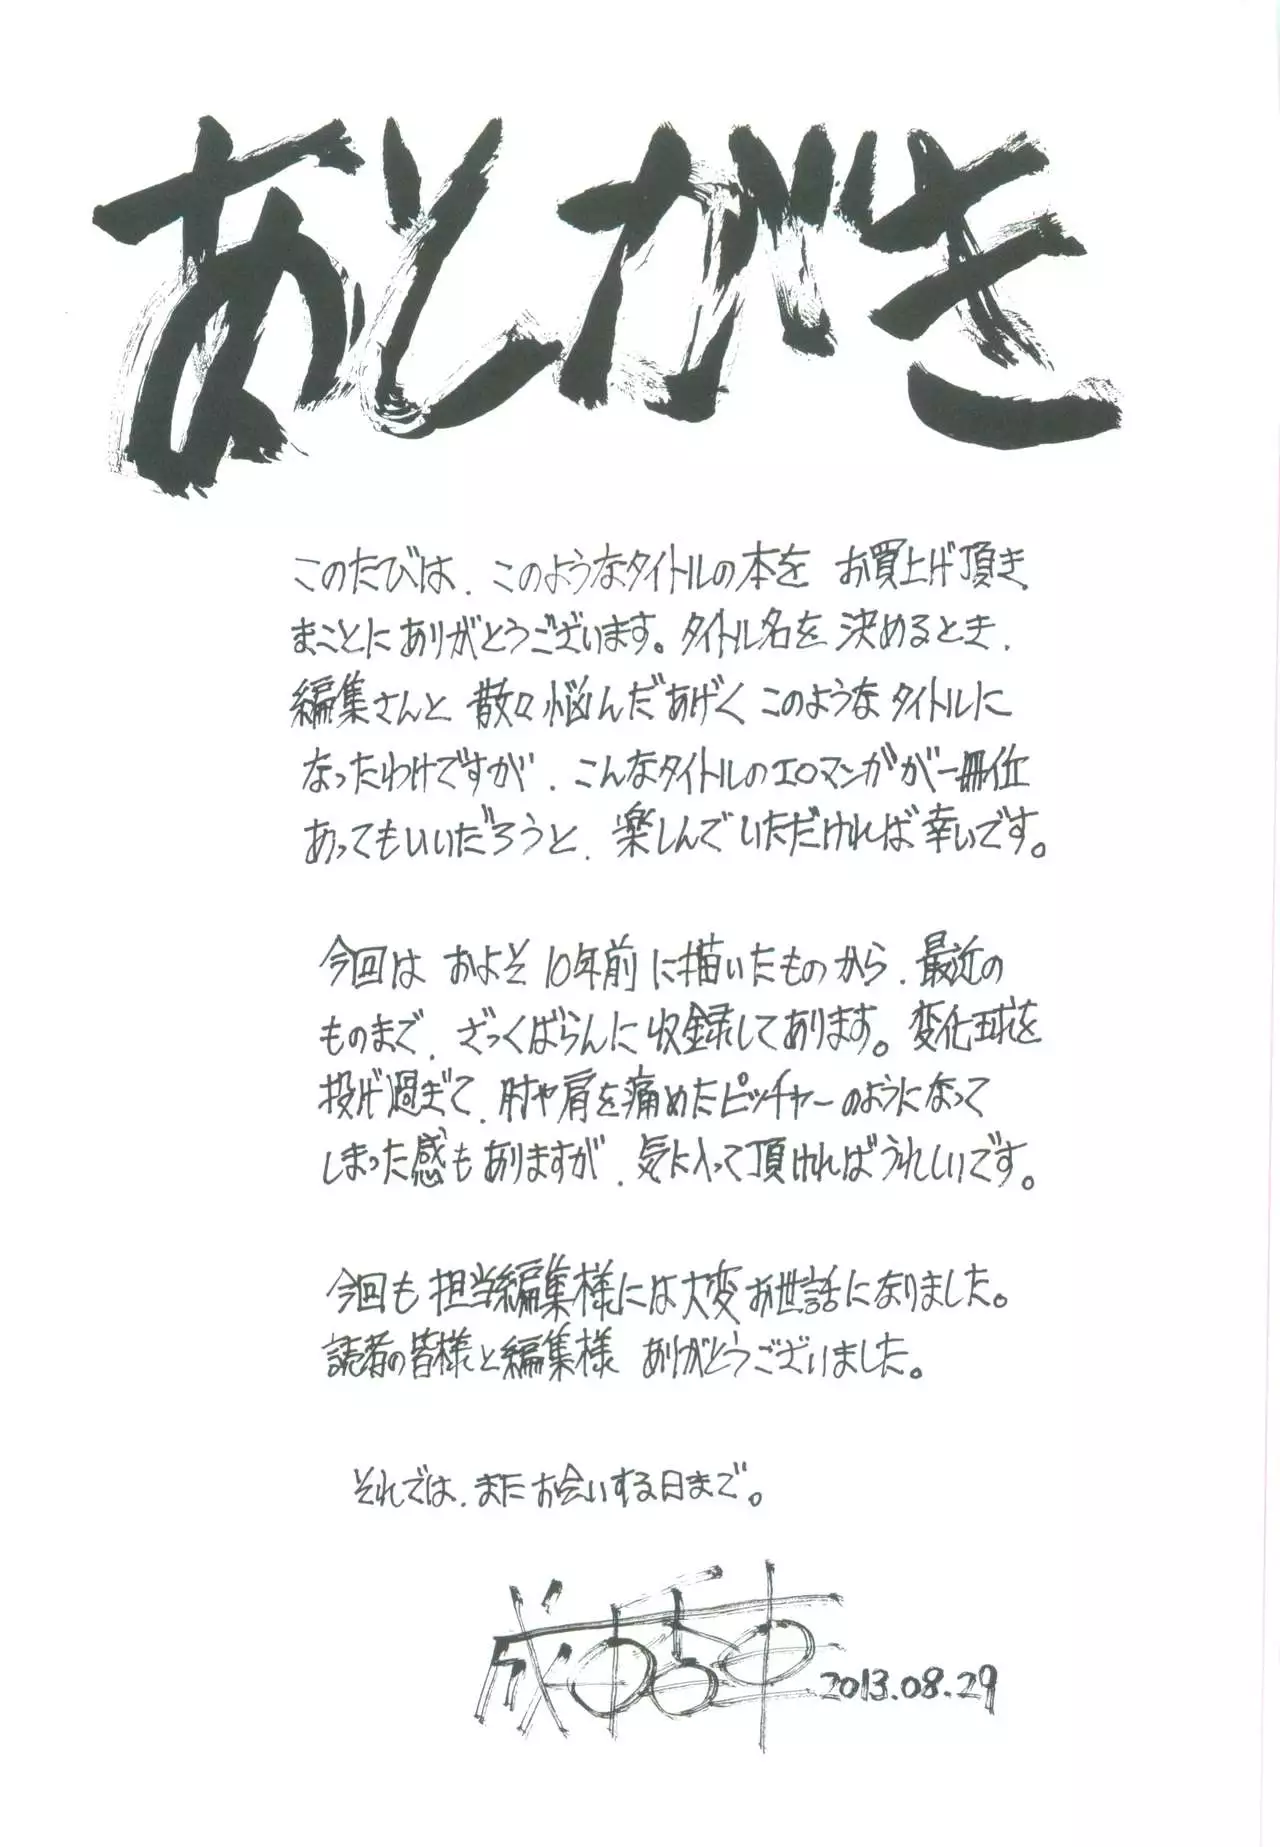 あとがき
このたびは、このようなタイトルの本を お買上げ頂き、
まことにありがとうございます。タイトル名を決めるとき、
編集さんと、散々悩んだあげく このようなタイトルに
なったわけですが、こんなタイトルのエロマンガが一冊位
あってもいいだろうと、楽しんでいただければ幸いです。
今回は およそ10年前に描いたものから、最近の
ものまで、ざっくばらんに収録してあります。変化球を
投げ過ぎて、肘や肩を痛めたピッチャーのようになって
しまった感もありますが、気に入って頂ければうれしいです。
今回も担当編集様には大変お世話になりました。
読者の皆様と編集様 ありがとうございました。
それでは、またお会いする日まで。
2013.08.29